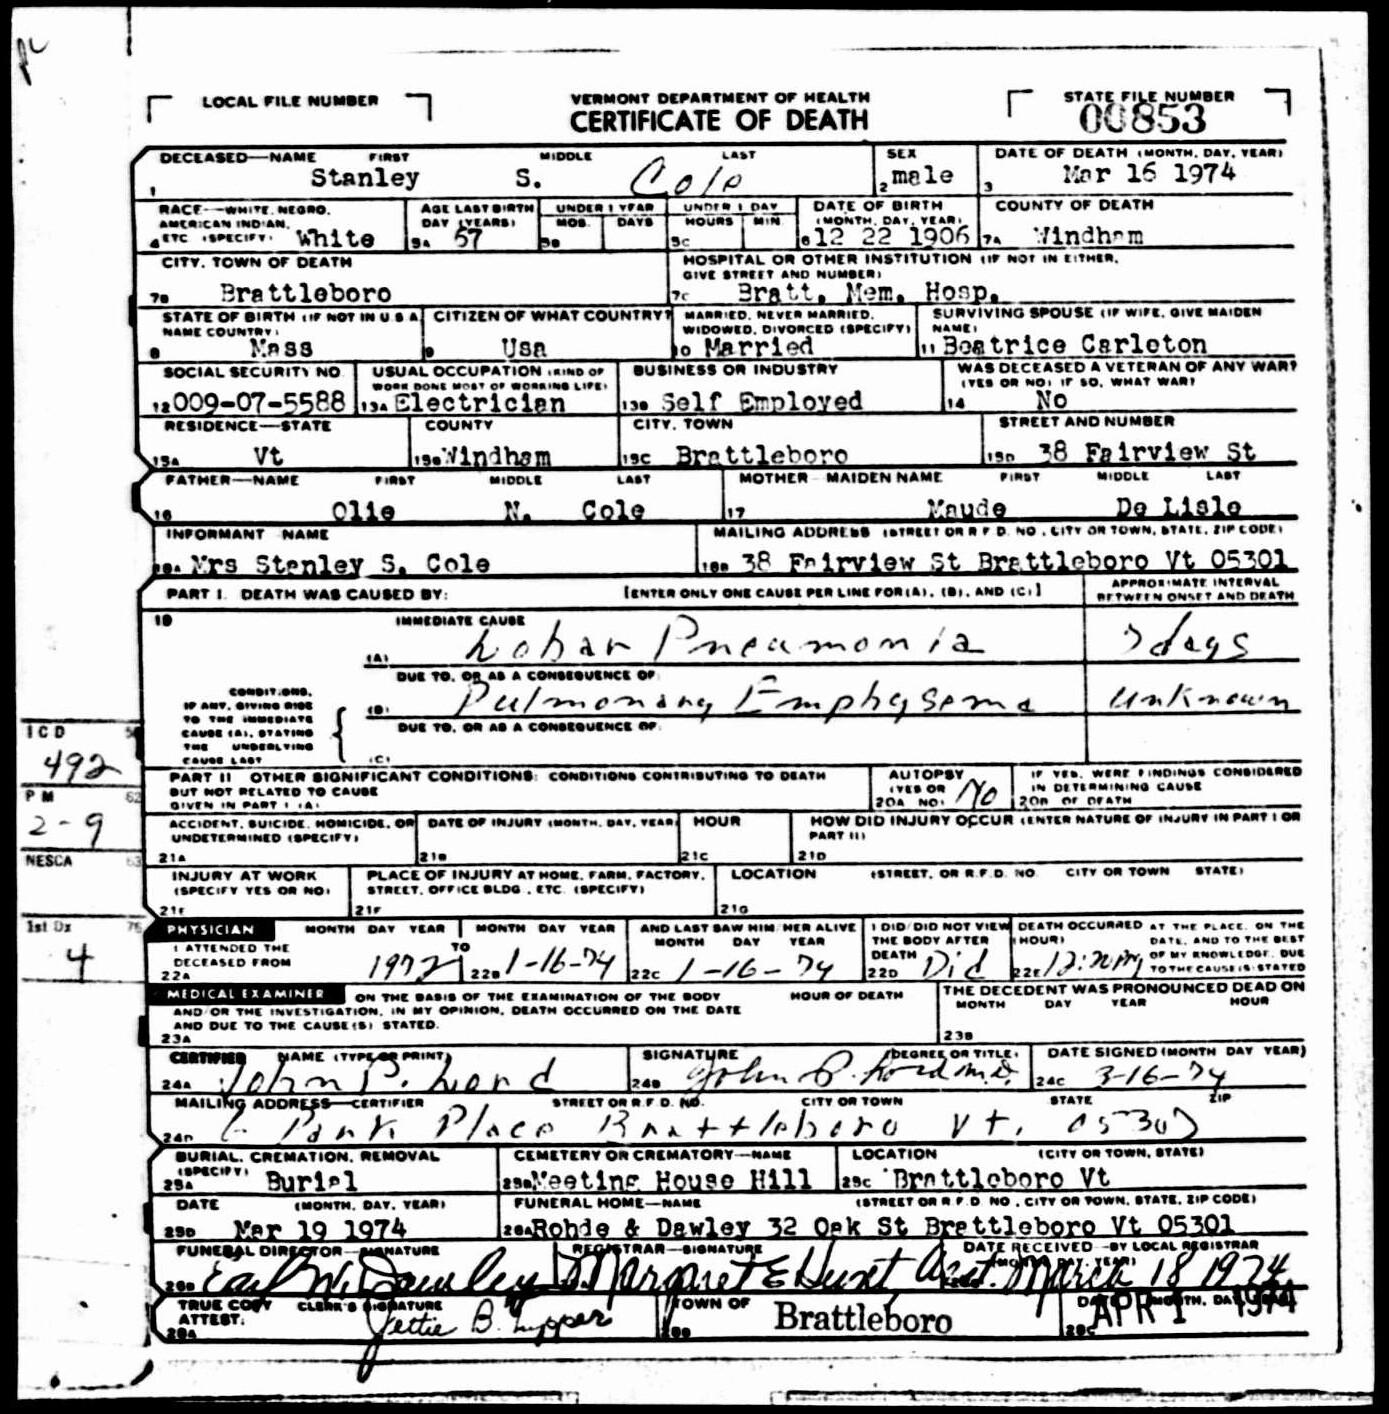 LOCAL FILE NUMBER
VERMONT DEPARTMENT OF HEALTH
CERTIFICATE OF DEATH
STATE FILE NUMBER
00853
DECEASED—NAME FIRST MIDDLE LAST SEX DATE OF DEATH (MONTH, DAY, YEAR)
1 Stanley S. Cole 2 male 3 Mar 16 1974
RACE—WHITE, NEGRO, AMERICAN INDIAN, ETC. (SPECIFY) AGE LAST BIRTHDAY (YEARS) UNDER 1 YEAR MOS. DAYS UNDER 1 DAY HOURS MIN. DATE OF BIRTH (MONTH, DAY, YEAR) COUNTY OF DEATH
4 White 5A 67 5B 5C 6 12 22 1906 7A Windham
CITY, TOWN OF DEATH HOSPITAL OR OTHER INSTITUTION (IF NOT IN EITHER, GIVE STREET AND NUMBER)
7B Brattleboro 7C Bratt. Mem. Hosp.
STATE OF BIRTH (IF NOT IN U S A NAME COUNTRY) CITIZEN OF WHAT COUNTRY? MARRIED, NEVER MARRIED, WIDOWED, DIVORCED (SPECIFY) SURVIVING SPOUSE (IF WIFE, GIVE MAIDEN NAME)
8 Mass 9 Usa 10 Married 11 Beatrice Carleton
SOCIAL SECURITY NO. USUAL OCCUPATION (KIND OF WORK DONE MOST OF WORKING LIFE) BUSINESS OR INDUSTRY WAS DECEASED A VETERAN OF ANY WAR? (YES OR NO) IF SO, WHAT WAR?
12 009-07-5588 13A Electrician 13B Self Employed 14 No
RESIDENCE—STATE COUNTY CITY, TOWN STREET AND NUMBER
15A Vt 15B Windham 15C Brattleboro 15D 38 Fairview St
FATHER—NAME FIRST MIDDLE LAST MOTHER—MAIDEN NAME FIRST MIDDLE LAST
16 Olie N. Cole 17 Maude De Lisle
INFORMANT NAME MAILING ADDRESS (STREET OR R F D. NO., CITY OR TOWN, STATE, ZIP CODE)
18A Mrs Stanley S. Cole 18B 38 Fairview St Brattleboro Vt 05301
PART I. DEATH WAS CAUSED BY: [ENTER ONLY ONE CAUSE PER LINE FOR (A), (B), AND (C)] APPROXIMATE INTERVAL BETWEEN ONSET AND DEATH
19 IMMEDIATE CAUSE
(A) Lobar Pneumonia 7 days
DUE TO, OR AS A CONSEQUENCE OF:
(B) Pulmonary Emphysema unknown
DUE TO, OR AS A CONSEQUENCE OF:
(C)
CONDITIONS, IF ANY, GIVING RISE TO THE IMMEDIATE CAUSE (A), STATING THE UNDERLYING CAUSE LAST
ICD
492
PM 62
2-9
NESCA 63
1st Dx 76
4
PART II OTHER SIGNIFICANT CONDITIONS: CONDITIONS CONTRIBUTING TO DEATH BUT NOT RELATED TO CAUSE GIVEN IN PART I (A) AUTOPSY (YES OR NO) IF YES, WERE FINDINGS CONSIDERED IN DETERMINING CAUSE OF DEATH
20A No 20B
ACCIDENT, SUICIDE, HOMICIDE, OR UNDETERMINED (SPECIFY) DATE OF INJURY (MONTH, DAY, YEAR) HOUR HOW DID INJURY OCCUR (ENTER NATURE OF INJURY IN PART I OR PART II)
21A 21B 21C 21D
INJURY AT WORK (SPECIFY YES OR NO) PLACE OF INJURY AT HOME, FARM, FACTORY, STREET, OFFICE BLDG., ETC. (SPECIFY) LOCATION (STREET, OR R.F.D. NO. CITY OR TOWN STATE)
21E 21F 21G
PHYSICIAN MONTH DAY YEAR MONTH DAY YEAR AND LAST SAW HIM/HER ALIVE MONTH DAY YEAR I DID/DID NOT VIEW THE BODY AFTER DEATH DEATH OCCURRED (HOUR) AT THE PLACE, ON THE DATE, AND TO THE BEST OF MY KNOWLEDGE, DUE TO THE CAUSE(S) STATED
I ATTENDED THE DECEASED FROM TO
22A 1972 22B 1-16-74 22C 1-16-74 22D Did 22E 12:20 PM
MEDICAL EXAMINER ON THE BASIS OF THE EXAMINATION OF THE BODY AND/OR THE INVESTIGATION, IN MY OPINION, DEATH OCCURRED ON THE DATE AND DUE TO THE CAUSE(S) STATED. HOUR OF DEATH THE DECEDENT WAS PRONOUNCED DEAD ON MONTH DAY YEAR HOUR
23A 23B
CERTIFIER NAME (TYPE OR PRINT) SIGNATURE (DEGREE OR TITLE) DATE SIGNED (MONTH DAY YEAR)
24A John P. Lord 24B John P. Lord M.D. 24C 3-16-74
MAILING ADDRESS—CERTIFIER STREET OR R.F.D. NO. CITY OR TOWN STATE ZIP
24D 6 Park Place Brattleboro Vt. 05301
BURIAL, CREMATION, REMOVAL (SPECIFY) CEMETERY OR CREMATORY—NAME LOCATION (CITY OR TOWN, STATE)
25A Burial 25B Meeting House Hill 25C Brattleboro Vt
DATE (MONTH, DAY, YEAR) FUNERAL HOME—NAME (STREET OR R.F.D. NO., CITY OR TOWN, STATE, ZIP CODE)
25D Mar 19 1974 26A Rohde & Dawley 32 Oak St Brattleboro Vt 05301
FUNERAL DIRECTOR—SIGNATURE REGISTRAR—SIGNATURE DATE RECEIVED—BY LOCAL REGISTRAR (MONTH, DAY, YEAR)
26B Earl W. Dawley Margaret E Hunt, Asst. March 18 1974
TRUE COPY ATTEST: CLERK'S SIGNATURE TOWN OF
28A Jettie B. Tupper 28B Brattleboro 28C APR 1 1974